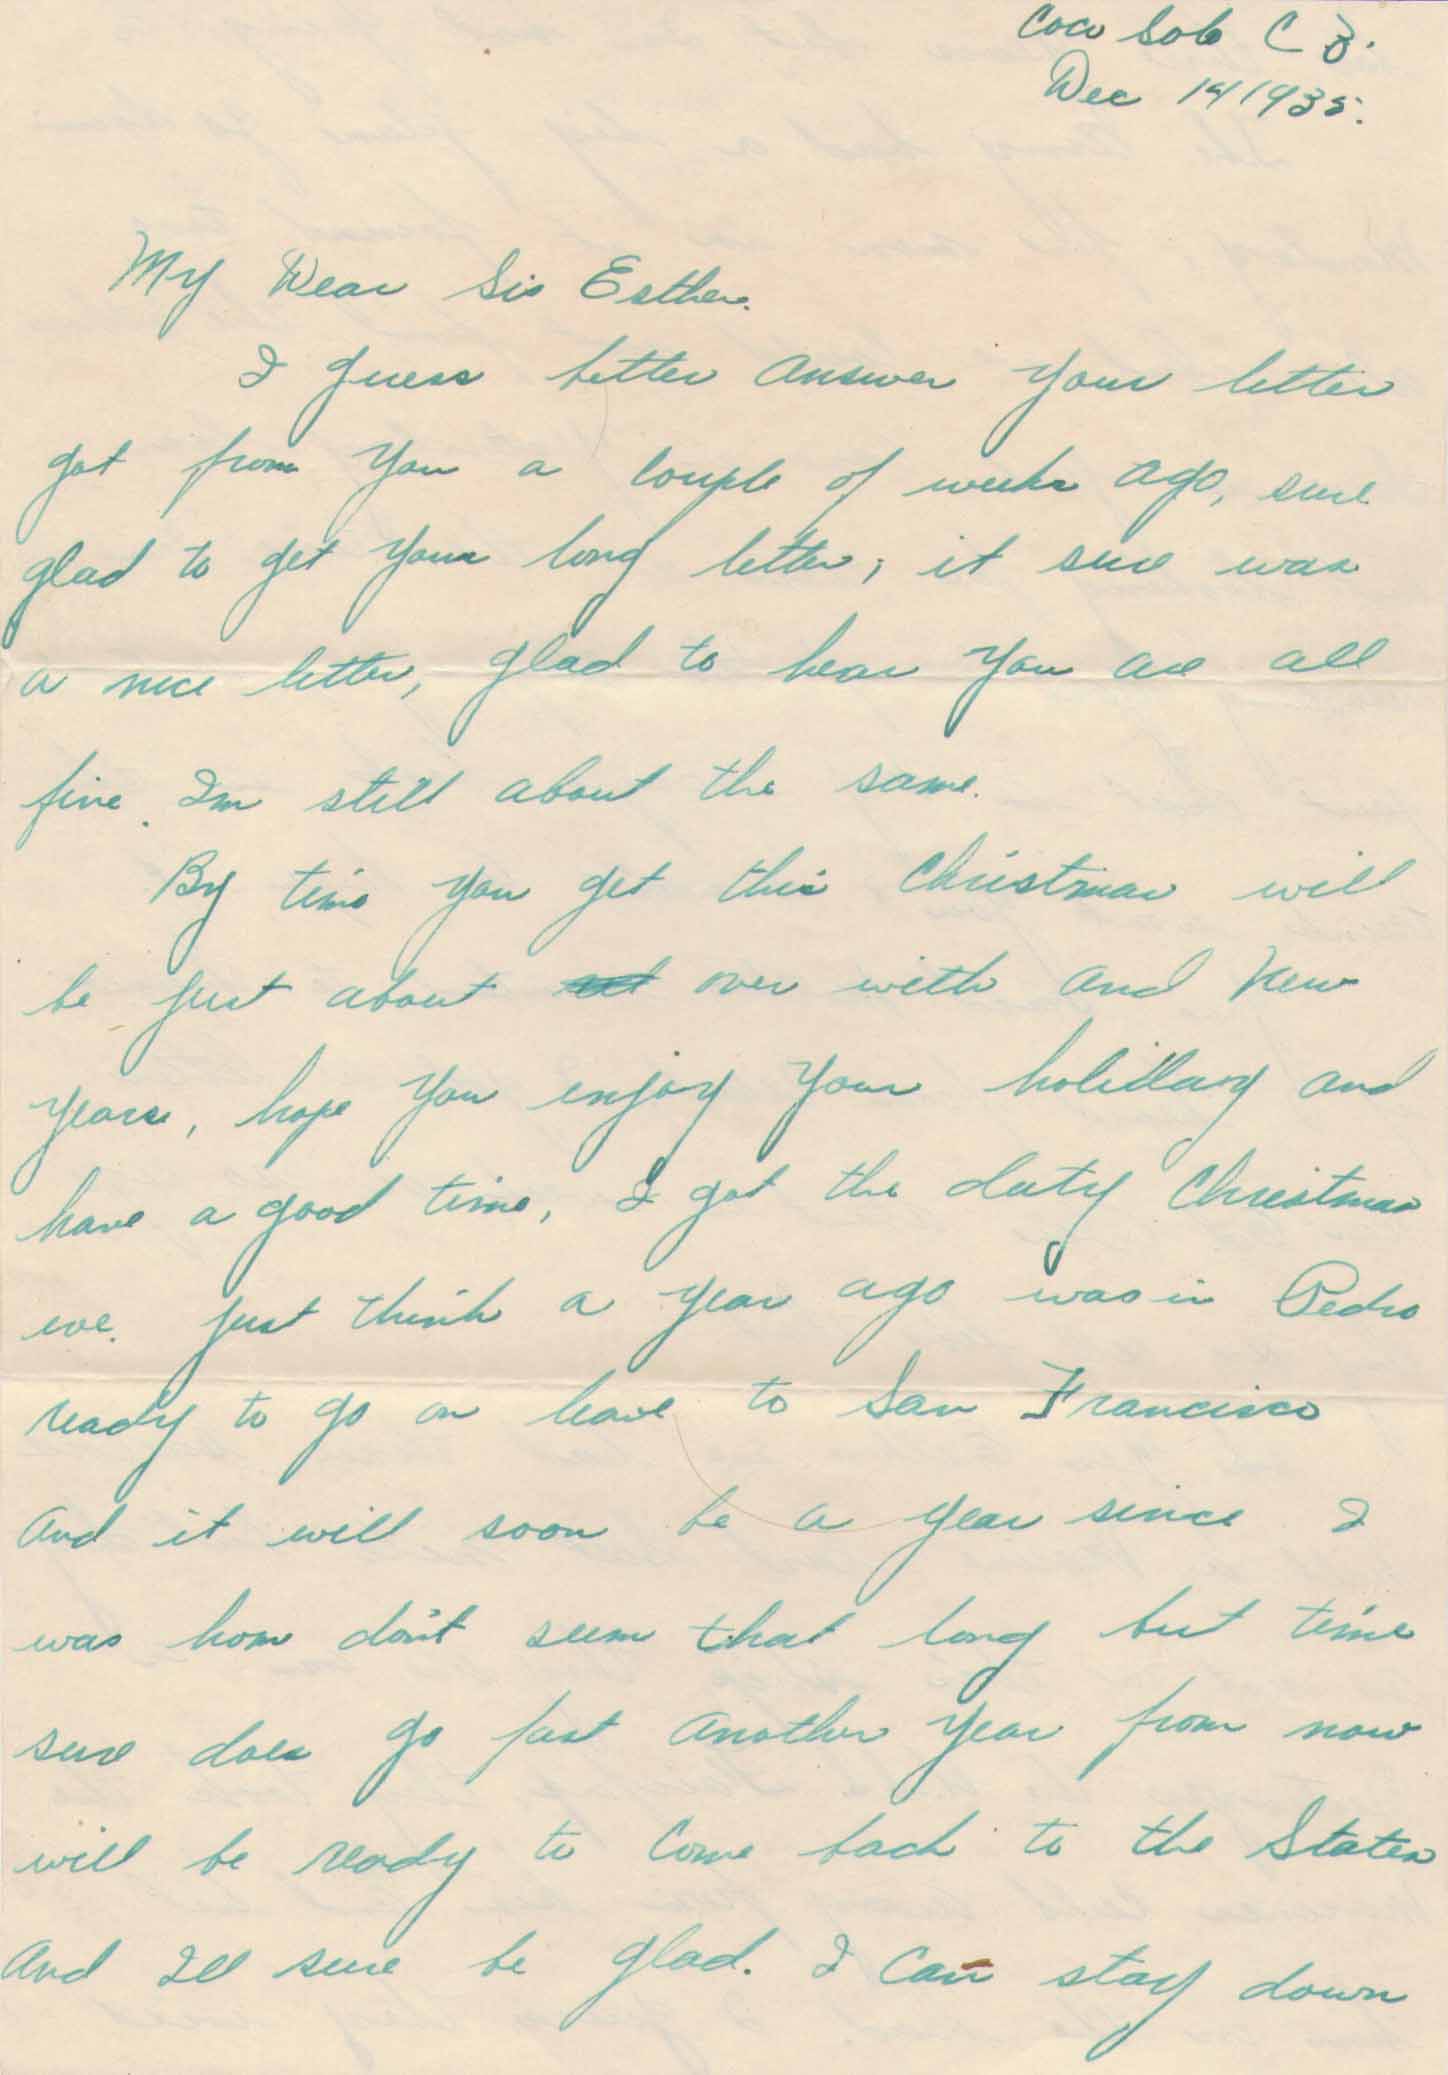 Coco Solo C Z.
Dec 14 1935.
My Dear Sis Esther.
I guess better answer your letter
got from you a couple of weeks ago, sure
glad to get your long letter; it sure was
a nice letter, glad to hear you are all
fine. Im still about the same.
By time you get this Christmas will
be just about over with and New
Years, hope you enjoy your holiday and
have a good time, I got the duty Christmas
eve. just think a year ago was in Pedro
ready to go on leave to San Francisco
And it will soon be a year since I
was hom don't seem that long but time
sure does go fast another year from now
will be ready to come back to the States
And Ill sure be glad. I can stay down